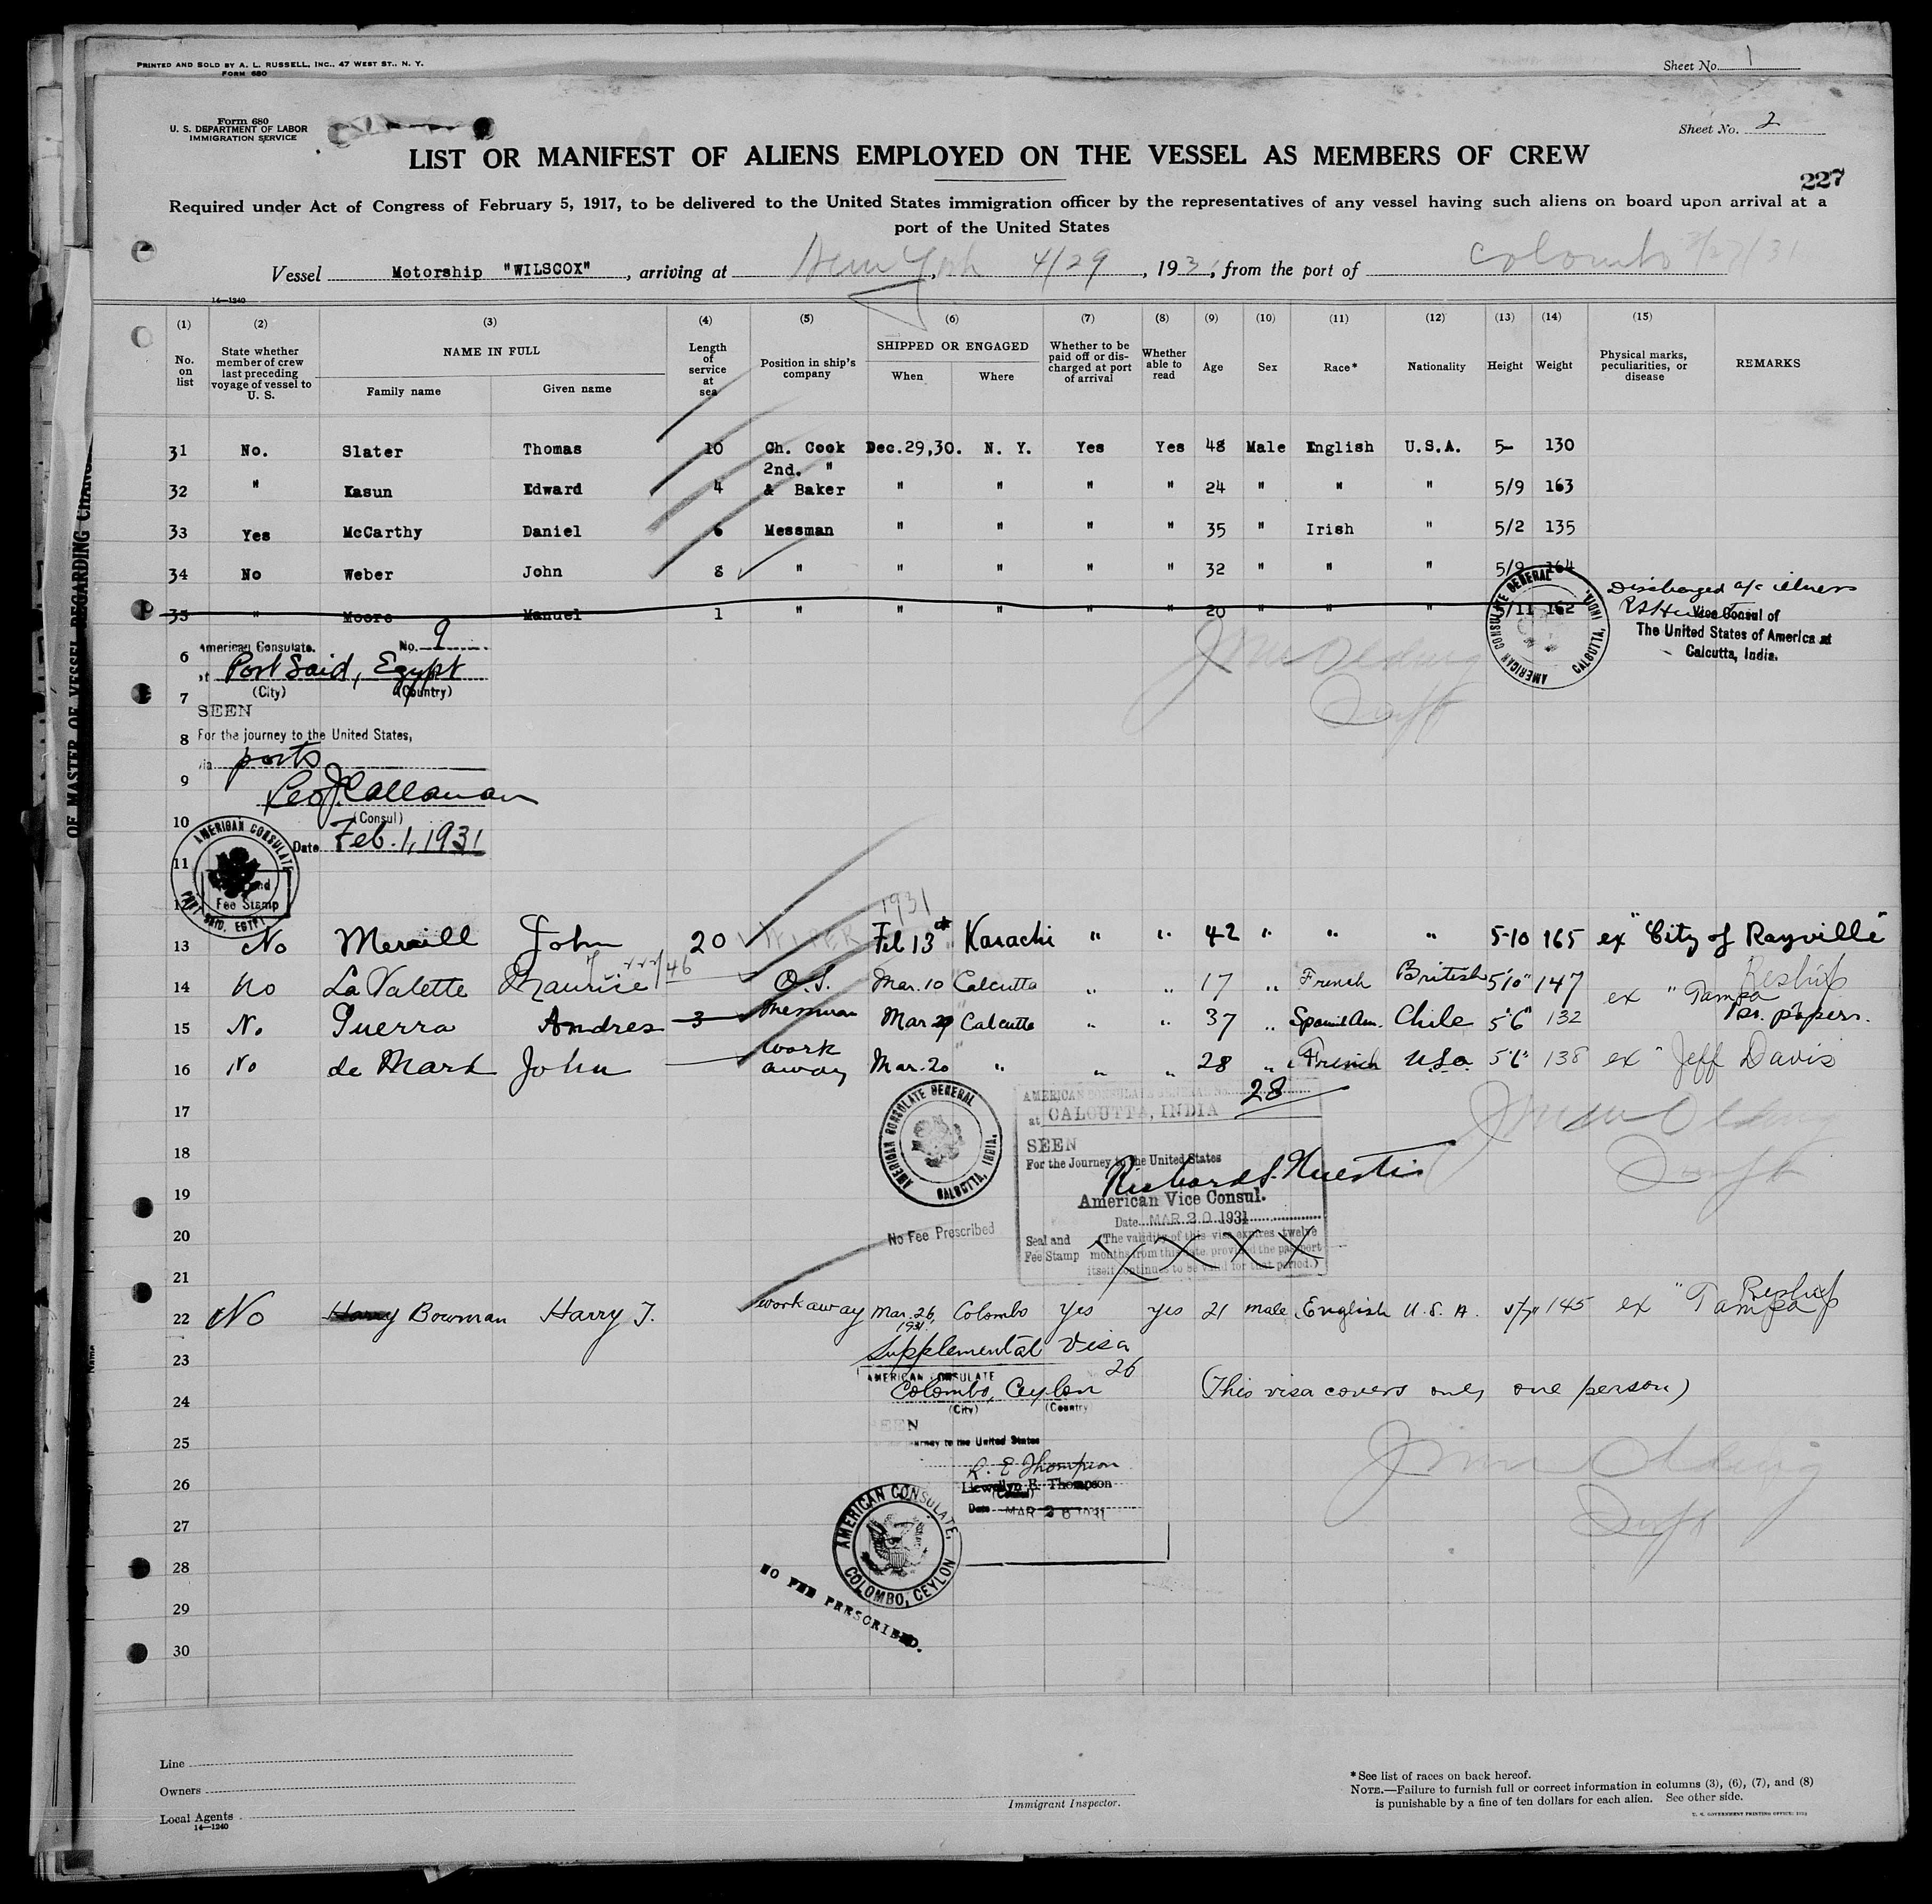 PRINTED AND SOLD BY A. L. RUSSELL, INC., 47 WEST ST., N. Y.
FORM 680
Sheet No. 1
Form 680
U. S. DEPARTMENT OF LABOR
IMMIGRATION SERVICE
Sheet No. 2
LIST OR MANIFEST OF ALIENS EMPLOYED ON THE VESSEL AS MEMBERS OF CREW
227
Required under Act of Congress of February 5, 1917, to be delivered to the United States immigration officer by the representatives of any vessel having such aliens on board upon arrival at a
port of the United States
Vessel Motorship "WILSCOX", arriving at New York 4/29, 193 1, from the port of Colombo 3/27/31
14—1240
(1) (2) (3) (4) (5) (6) (7) (8) (9) (10) (11) (12) (13) (14) (15)
No. on list
State whether member of crew last preceding voyage of vessel to U. S.
NAME IN FULL
Family name Given name
Length of service at sea
Position in ship's company
SHIPPED OR ENGAGED
When Where
Whether to be paid off or discharged at port of arrival
Whether able to read
Age Sex Race* Nationality Height Weight
Physical marks, peculiarities, or disease
REMARKS
31 No. Slater Thomas 10 Ch. Cook Dec.29,30. N. Y. Yes Yes 48 Male English U.S.A. 5- 130
2nd. "
32 " Kasun Edward 4 & Baker " " " " 24 " " " 5/9 163
33 Yes McCarthy Daniel 6 Messman " " " " 35 " Irish " 5/2 135
34 No Weber John 8 " " " " " 32 " " " 5/9 164
35 " Moore Manuel 1 " " " " " 20 " " " 5/11 162
Discharged a/c illness
Vice Consul of
The United States of America at
Calcutta, India.
AMERICAN CONSULATE GENERAL CALCUTTA, INDIA
American Consulate. No. 9
6 at Port Said, Egypt
(City) (Country)
7
SEEN
8 For the journey to the United States,
via ports
9
Leo J. Callanan
10 (Consul)
Date Feb. 1, 1931
11
AMERICAN CONSULATE PORT SAID, EGYPT
Fee Stamp
12
1931
13 No Merrill John 20 WIPER Feb 13 Karachi " " 42 " " " 5-10 165 ex "City of Rayville"
14 No La Valette Maurice O.S. Mar. 10 Calcutta " " 17 " French British 5'10" 147 ex "Tampa Reship
15 No Guerra Andres 3 Messman Mar 20 Calcutta " " 37 " Spanish Am. Chile 5'6" 132 papers.
16 No de Mark John work away Mar. 20 " " " 28 " French U.S.A. 5'6" 138 ex "Jeff Davis
17
AMERICAN CONSULATE GENERAL No. 28
at CALCUTTA, INDIA
18
SEEN
For the Journey to the United States
Richard S. Huestis
19
American Vice Consul.
Date MAR 20 1931
AMERICAN CONSULATE GENERAL CALCUTTA, INDIA.
20
No Fee Prescribed
Seal and Fee Stamp
(The validity of this visa expires twelve
months from this date, provided the passport
itself continues to be valid for that period.)
21
22 No Harry Bowman Harry J. workaway Mar. 26, 1931 Colombo Yes Yes 21 male English U. S. A. 5/7 145 ex "Tampa Reship
Supplemental Visa
23
26
AMERICAN CONSULATE
Colombo, Ceylon (This visa covers only one person)
24 (City) (Country)
SEEN
25 journey to the United States
R. E Thompson
26 Llewellyn E. Thompson
(Consul)
Date MAR 26 1931
27
AMERICAN CONSULATE, COLOMBO, CEYLON
28
NO FEE PERSCRIBED.
29
30
Line
Owners
Local Agents
14—1240
Immigrant Inspector.
*See list of races on back hereof.
NOTE.—Failure to furnish full or correct information in columns (3), (6), (7), and (8)
is punishable by a fine of ten dollars for each alien. See other side.
OF MASTER OF VESSEL REGARDING CHANG